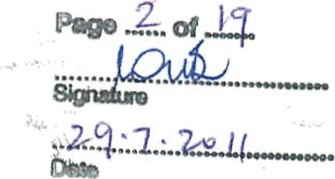 Page 2 of 19
Signature
29.7.2011
Date